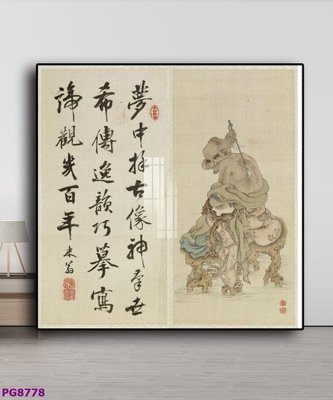 夢中拜古像神筆世
希傳逸韻巧摹寫
諦觀幾百年
米翁
PG8778